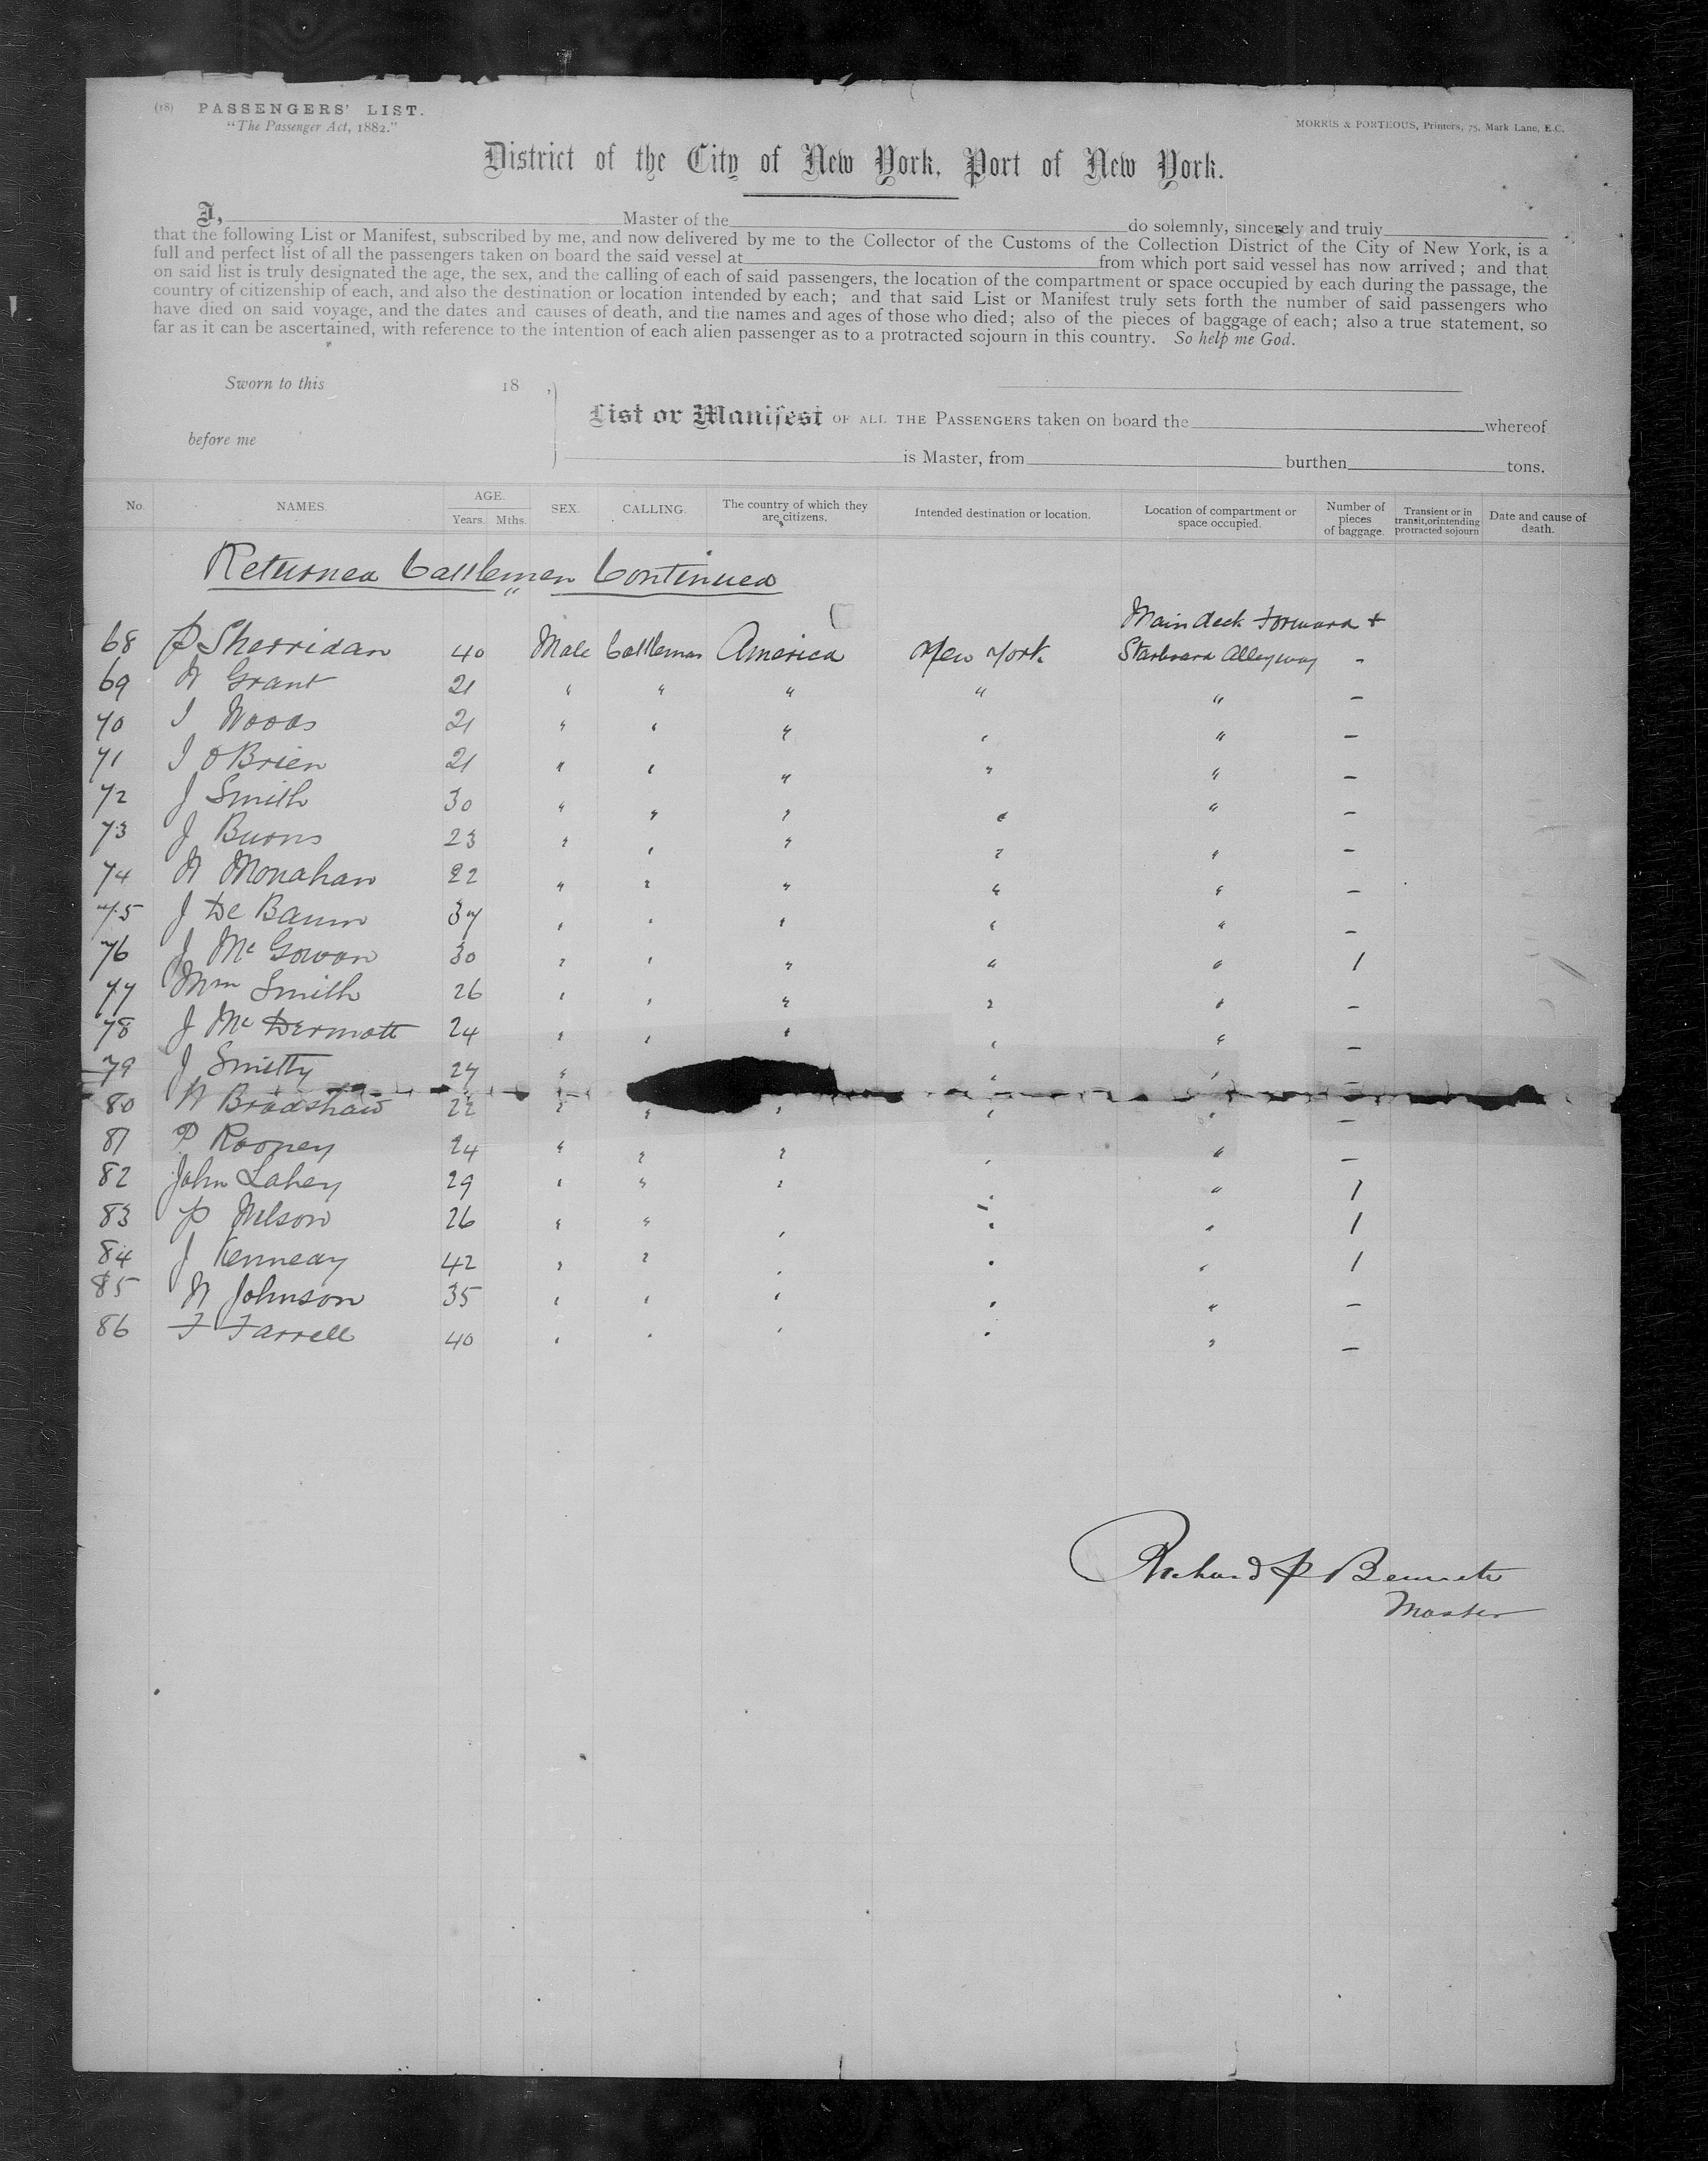 (18) PASSENGERS' LIST.
"The Passenger Act, 1882."
MORRIS & PORTEOUS, Printers, 75, Mark Lane, E.C.
District of the City of New York, Port of New York.
I, Master of the do solemnly, sincerely and truly
that the following List or Manifest, subscribed by me, and now delivered by me to the Collector of the Customs of the Collection District of the City of New York, is a
full and perfect list of all the passengers taken on board the said vessel at from which port said vessel has now arrived; and that
on said list is truly designated the age, the sex, and the calling of each of said passengers, the location of the compartment or space occupied by each during the passage, the
country of citizenship of each, and also the destination or location intended by each; and that said List or Manifest truly sets forth the number of said passengers who
have died on said voyage, and the dates and causes of death, and the names and ages of those who died; also of the pieces of baggage of each; also a true statement, so
far as it can be ascertained, with reference to the intention of each alien passenger as to a protracted sojourn in this country. So help me God.
Sworn to this 18 ,
before me
List or Manifest OF ALL THE PASSENGERS taken on board the whereof
is Master, from burthen tons.
No. NAMES. AGE. Years. Mths. SEX. CALLING. The country of which they are citizens. Intended destination or location. Location of compartment or space occupied. Number of pieces of baggage. Transient or in transit, or intending protracted sojourn Date and cause of death.
Returned Cattlemen Continued
Main deck Forward +
68 P Sherridan 40 Male Cattleman America New York Starboard Alleyway -
69 W Grant 21 " " " " " -
70 J Woods 21 " " " " " -
71 J O'Brien 21 " " " " " -
72 J Smith 30 " " " " " -
73 J Burns 23 " " " " " -
74 W Monahan 22 " " " " " -
75 J De Baun 37 " " " " " -
76 J Mc Gowan 30 " " " " " 1
77 Wm Smith 26 " " " " " -
78 J Mc Dermott 24 " " " " " -
79 J Smitty 27 " " " -
80 W Bradshaw 22 " " " " " -
81 P Rooney 24 " " " " " -
82 John Lahey 29 " " " " " 1
83 P Wilson 26 " " " " " 1
84 J Kennedy 42 " " " " " 1
85 W Johnson 35 " " " " " -
86 F Farrell 40 " " " " " -
Richard P Bennett
Master